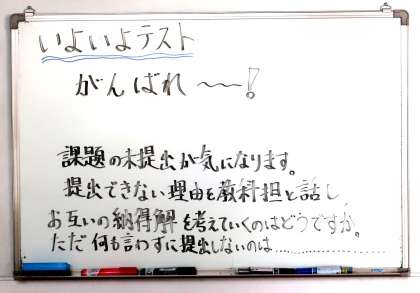 いよいよテスト
がんばれ〜〜!
課題の未提出が気になります。
提出できない理由を教科担と話し、
お互いの納得解を考えていくのはどうですか。
ただ何も言わずに提出しないのは……………